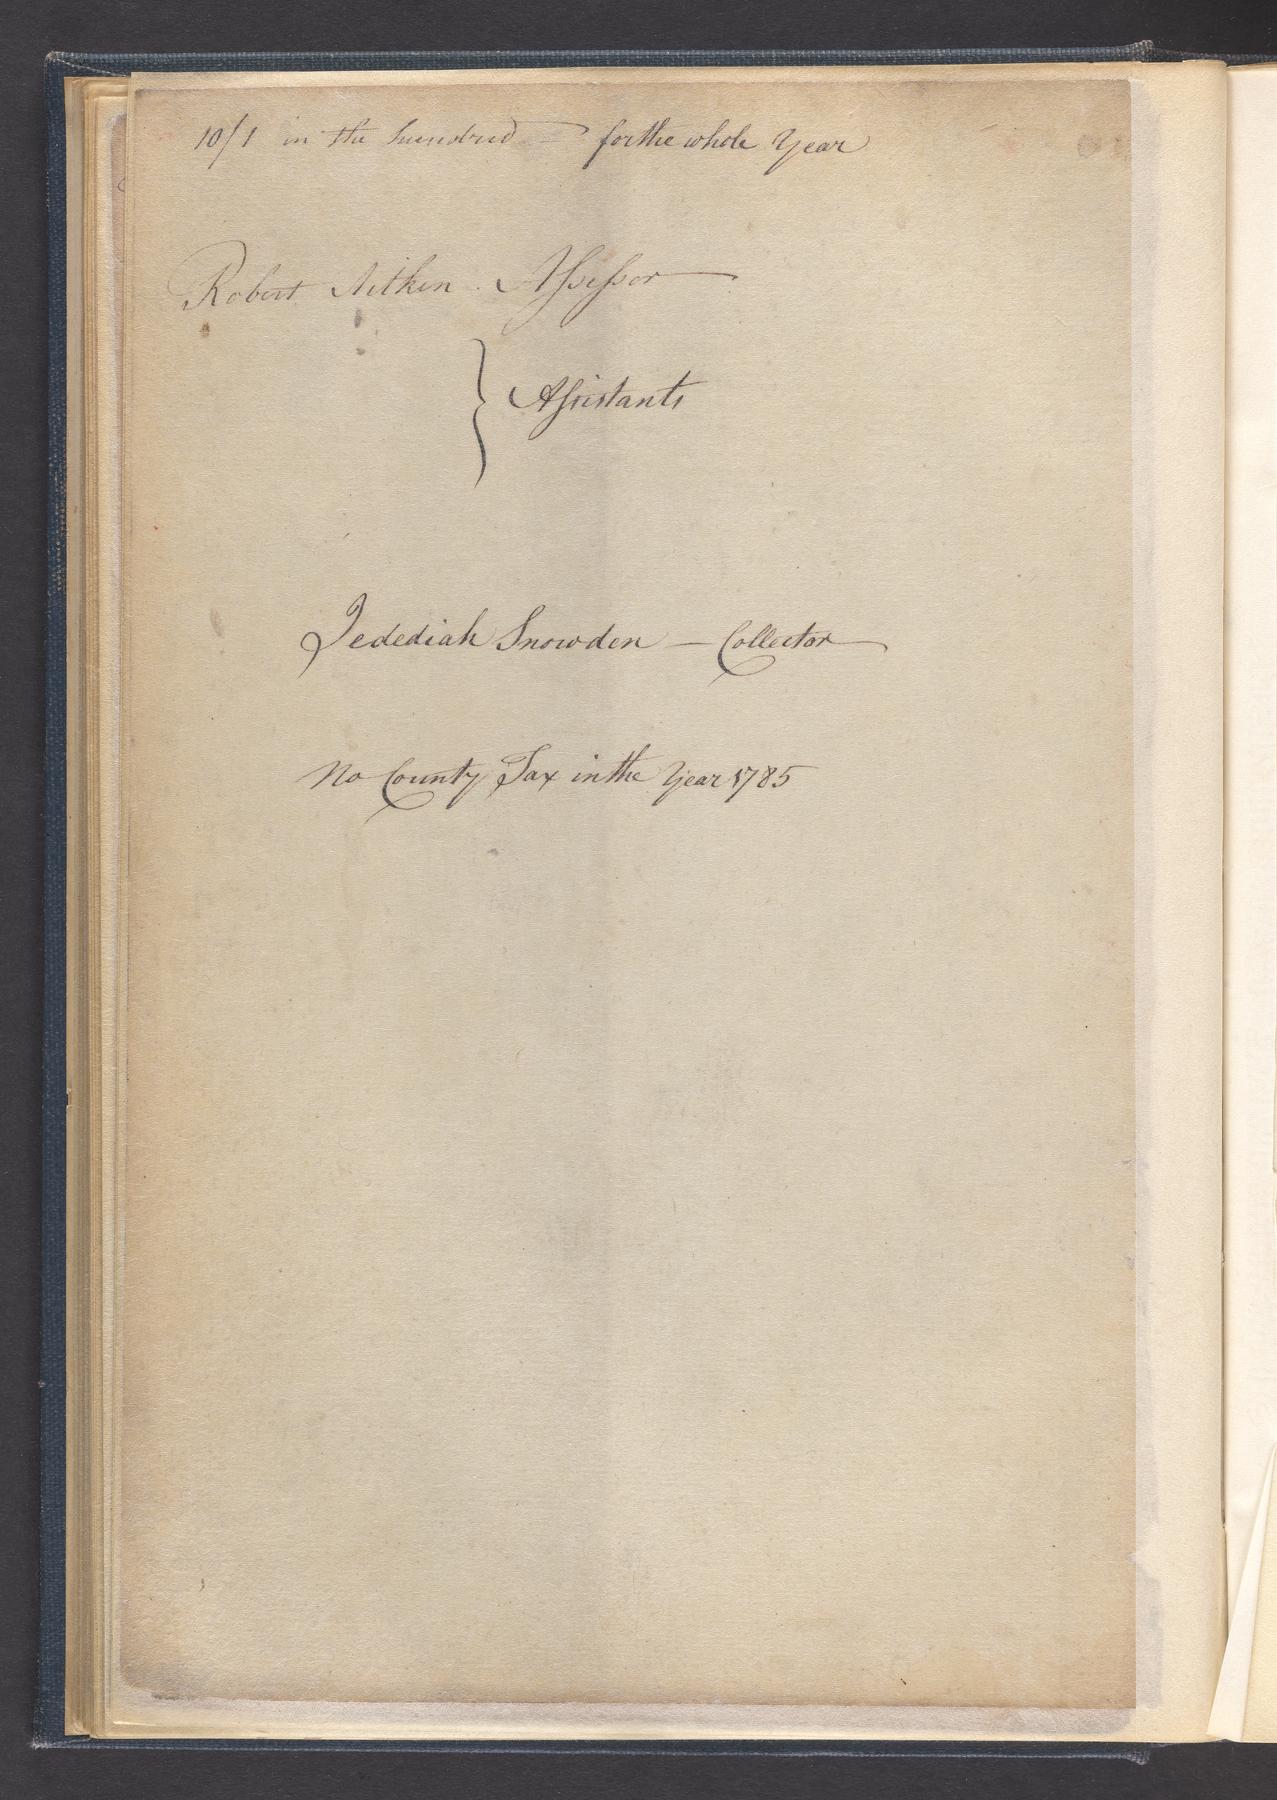 10/1 in the hundred = for the whole Year
Robert Aitken . Assessor
} Assistants
Jedediah Snowden — Collector
No County Tax in the Year 1785